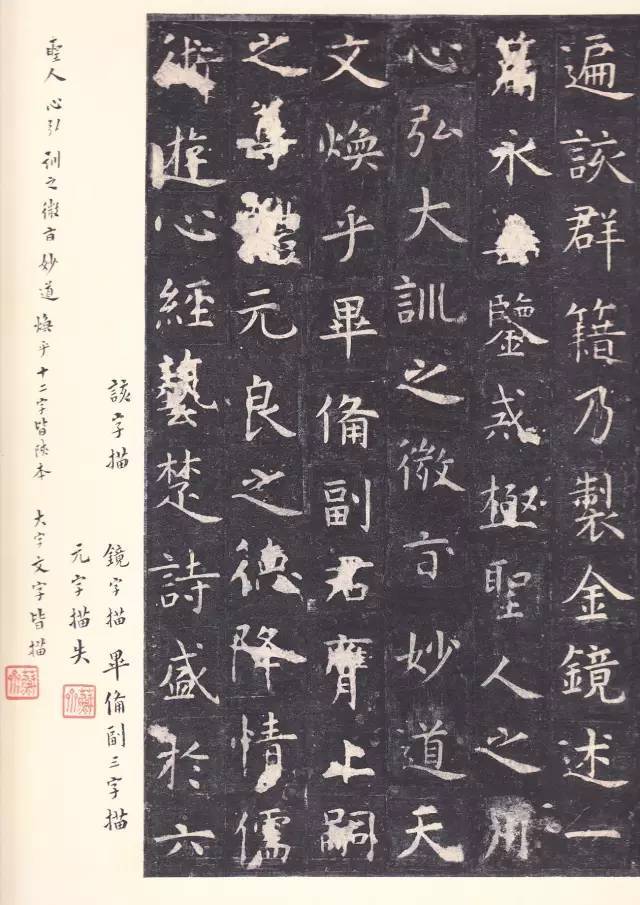 遍該群籍乃製金鏡述一
篇永垂鑒戒極聖人之用
心弘大訓之微旨妙道天
文煥乎畢備副君膺上嗣
之尊禮元良之德降情儒
術遊心經藝楚詩盛於六
該字描 鏡字描 畢備副三字描
元字描失
聖人 心弘 訓之微旨 妙道 煥乎十二字皆陝本 大字文字皆描